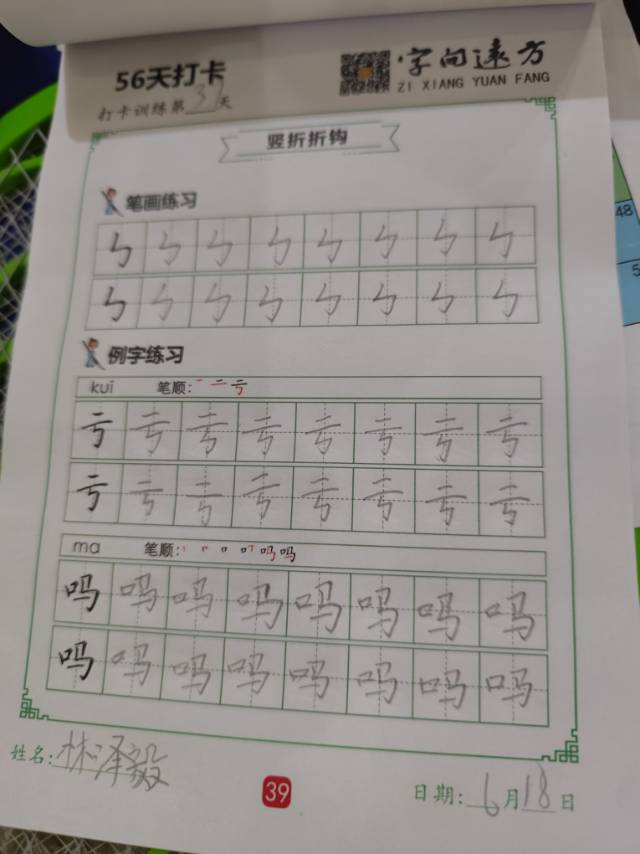 56天打卡
字向远方
打卡训练第37天
ZI XIANG YUAN FANG
竖折折钩
笔画练习
ㄣ ㄣ ㄣ ㄣ ㄣ ㄣ ㄣ ㄣ
ㄣ ㄣ ㄣ ㄣ ㄣ ㄣ ㄣ ㄣ
例字练习
kuī 笔顺: 一 二 亏
亏 亏 亏 亏 亏 亏 亏 亏
亏 亏 亏 亏 亏 亏 亏 亏
ma 笔顺: 吗 吗
吗 吗 吗 吗 吗 吗 吗 吗
吗 吗 吗 吗 吗 吗 吗 吗
姓名: 林泽毅
39
日期: 6月18日
48
5